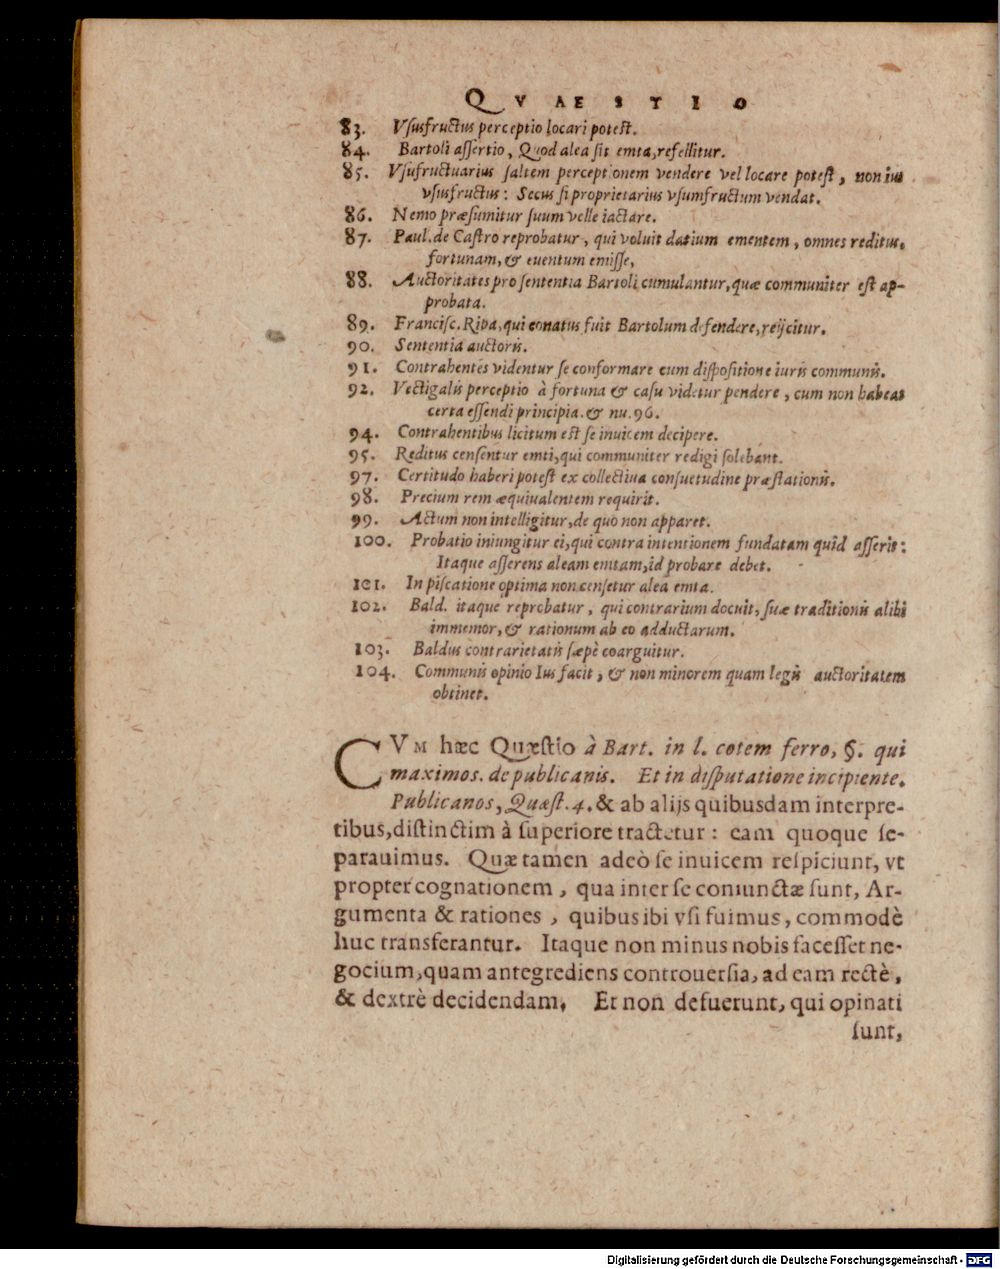 QVAESTIO
83. Vſusfructus perceptio locari poteſt.
84. Bartoli aſſertio, Quod alea ſit emta, refellitur.
85. Vſufructuarius ſaltem perceptionem vendere vel locare poteſt, non ius
vſusfructus: Secus ſi proprietarius vſumfructum vendat.
86. Nemo præſumitur ſuum velle iactare.
87. Paul. de Caſtro reprobatur, qui voluit datium ementem, omnes reditus,
fortunam, & euentum emiſſe,
88. Auctoritates pro ſententia Bartoli cumulantur, quæ communiter eſt ap-
probata.
89. Franciſc. Ripa, qui conatus fuit Bartolum defendere, reijcitur.
90. Sententia auctoris.
91. Contrahentes videntur ſe conformare cum diſpoſitione iuris communis.
92. Vectigalis perceptio à fortuna & caſu videtur pendere, cum non habeat
certa eſſendi principia. & nu. 96.
94. Contrahentibus licitum eſt ſe inuicem decipere.
95. Reditus cenſentur emti, qui communiter redigi ſolebant.
97. Certitudo haberi poteſt ex collectiua conſuetudine præſtationis.
98. Precium rem æquiualentem requirit.
99. Actum non intelligitur, de quo non apparet.
100. Probatio iniungitur ei, qui contra intentionem fundatam quid aſſerit:
Itaque aſſerens aleam emtam, id probare debet.
101. In piſcatione optima non cenſetur alea emta.
102. Bald. itaque reprobatur, qui contrarium docuit, ſuæ traditionis alibi
immemor, & rationum ab eo adductarum.
103. Baldus contrarietatis ſæpè coarguitur.
104. Communis opinio Ius facit, & non minorem quam legis auctoritatem
obtinet.
CVM hæc Quæſtio à Bart. in l. cotem ferro, §. qui
maximos. de publicanis. Et in diſputatione incipiente.
Publicanos, Quæſt. 4. & ab alijs quibusdam interpre-
tibus, diſtinctim à ſuperiore tractetur: eam quoque ſe-
parauimus. Quæ tamen adeò ſe inuicem reſpiciunt, vt
propter cognationem, qua inter ſe coniunctæ ſunt, Ar-
gumenta & rationes, quibus ibi vſi fuimus, commodè
huc transferantur. Itaque non minus nobis faceſſet ne-
gocium, quam antegrediens controuerſia, ad eam rectè,
& dextrè decidendam. Et non defuerunt, qui opinati
ſunt,
Digitalisierung gefördert durch die Deutsche Forschungsgemeinschaft - DFG